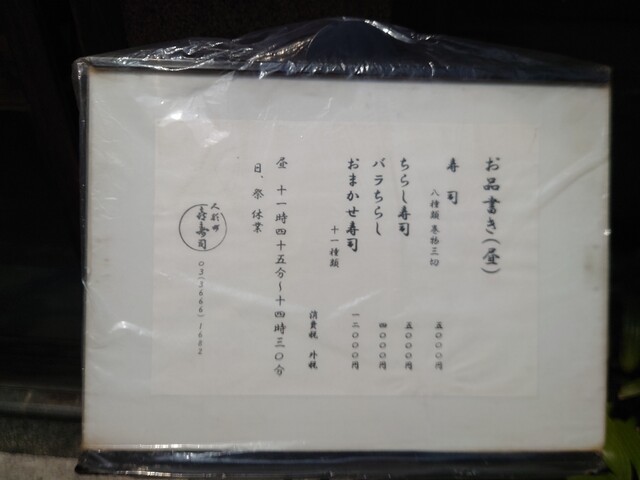 お品書き(昼)
寿司
八種類 巻物三切
五〇〇〇円
ちらし寿司
五〇〇〇円
バラちらし
四〇〇〇円
おまかせ寿司
十一種類
一二〇〇〇円
消費税 外税
昼 十一時四十五分～十四時三〇分
日、祭 休業
人形町
㐂寿司
03(3666)1682